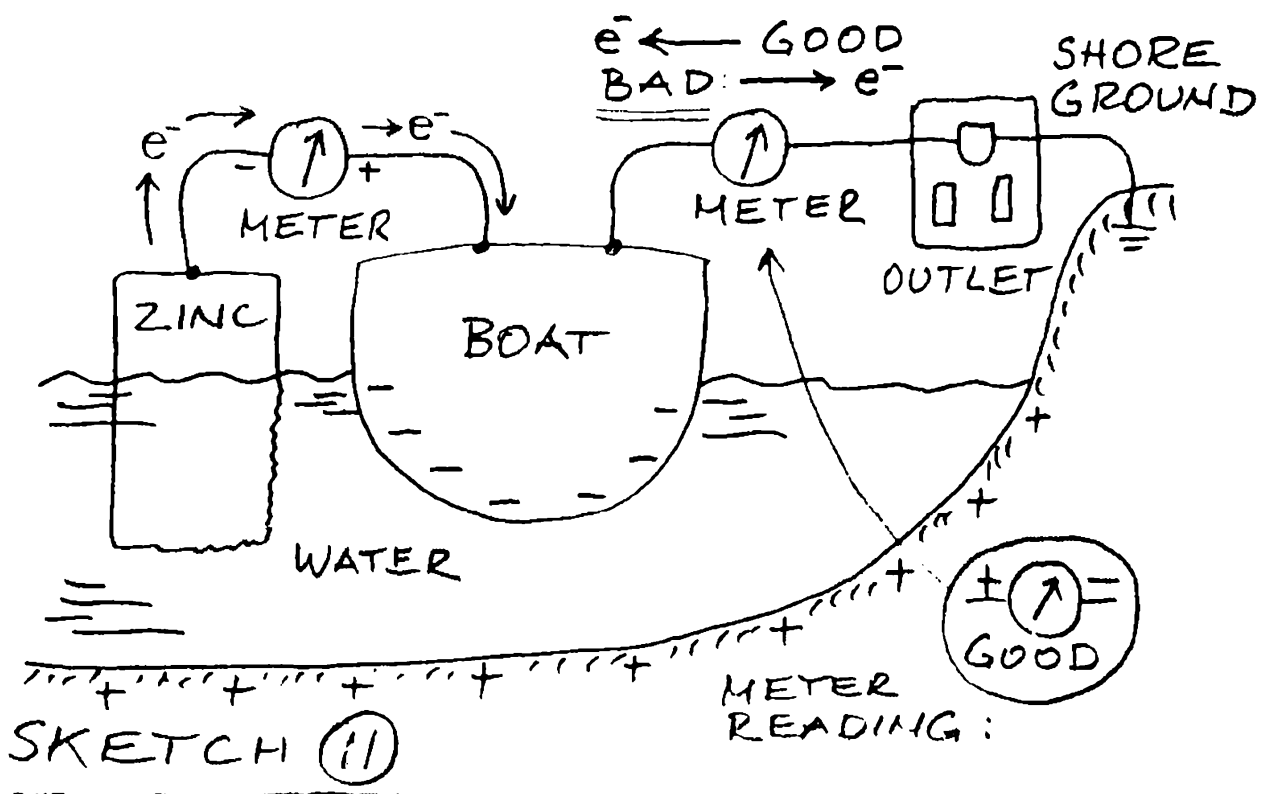 e⁻ ← GOOD
BAD: → e⁻
SHORE
GROUND
e⁻ → → e⁻
- +
METER
METER
OUTLET
ZINC
BOAT
WATER
+ -
GOOD
METER
READING:
SKETCH 11